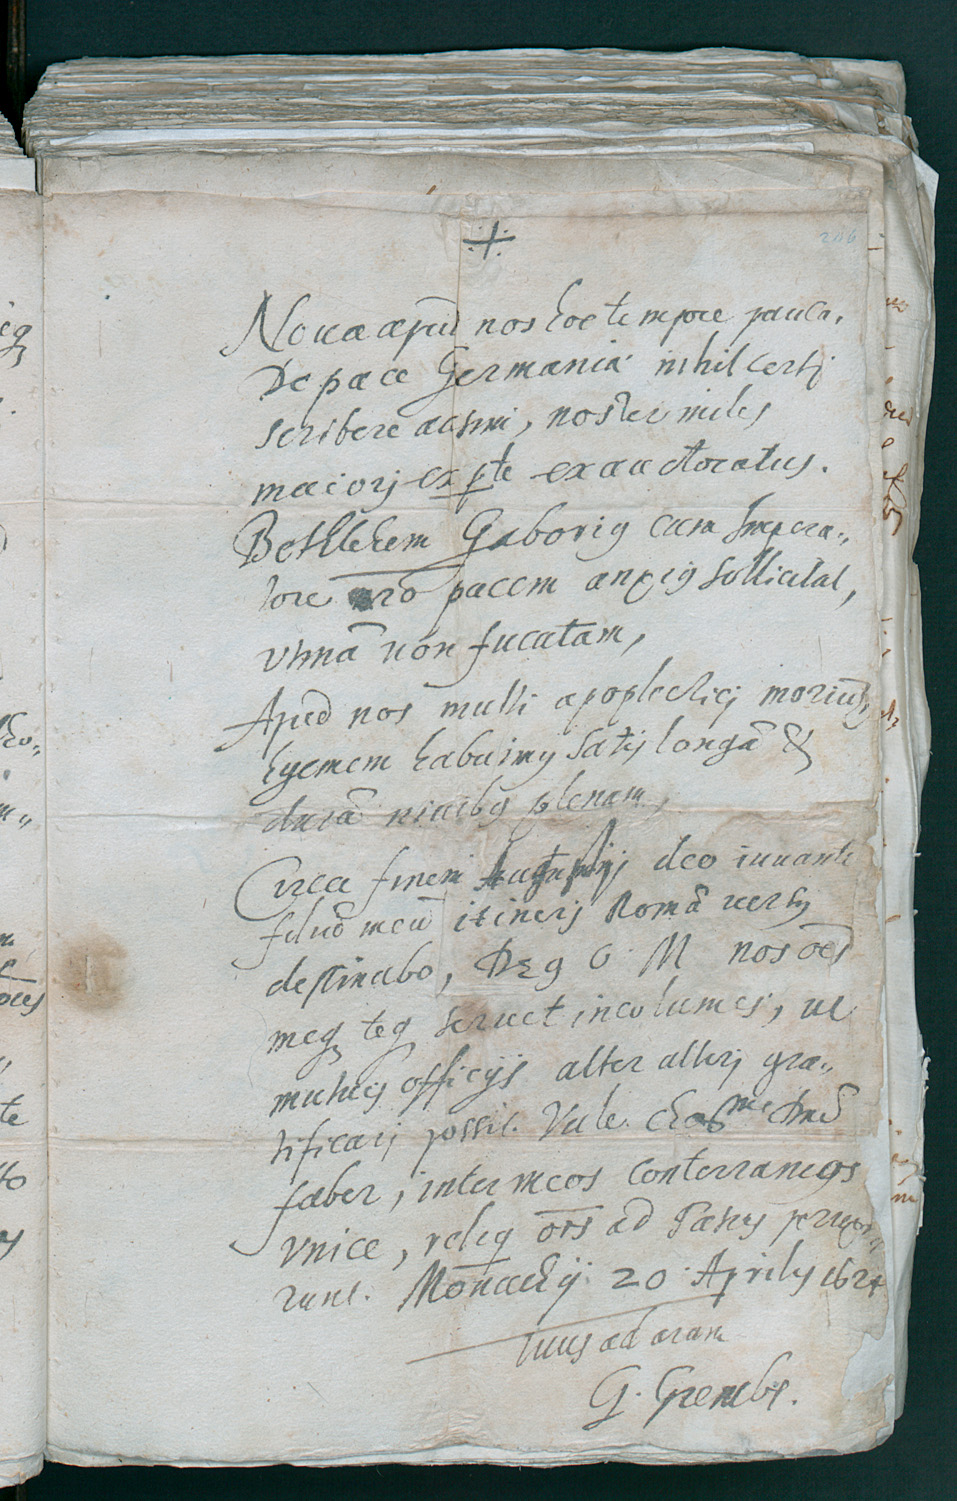 +
Noua apud nos hoc tempore pauca.
De pace Germania nihil certj
scribere ausim, noster miles
maiorj ex pte exauctoratus.
Bethlehem Gaborig cum Impera„
tore pacem anxig sollicitat,
vtinā non fucatam,
Apud nos multi apoplecticj moriūt,
hyemem habuimg satis longā &
durā niuibg plenam,
Circa finem Augustj deo iuuante
filiū meū itinerj Romā versg
destinabo, Deg O M nos oēs
meq teq seruet incolumes, ut
mutuis officijs alter alterj gra„
tificarj possit. Vale. chaʳⁱˢᵐᵉ Dnē
faber, inter meos conterraneos
vnice, reliq oēs ad Patres
runt. Monachij 20 Aprilis 1624
tuus ad aram
G. Grembs.